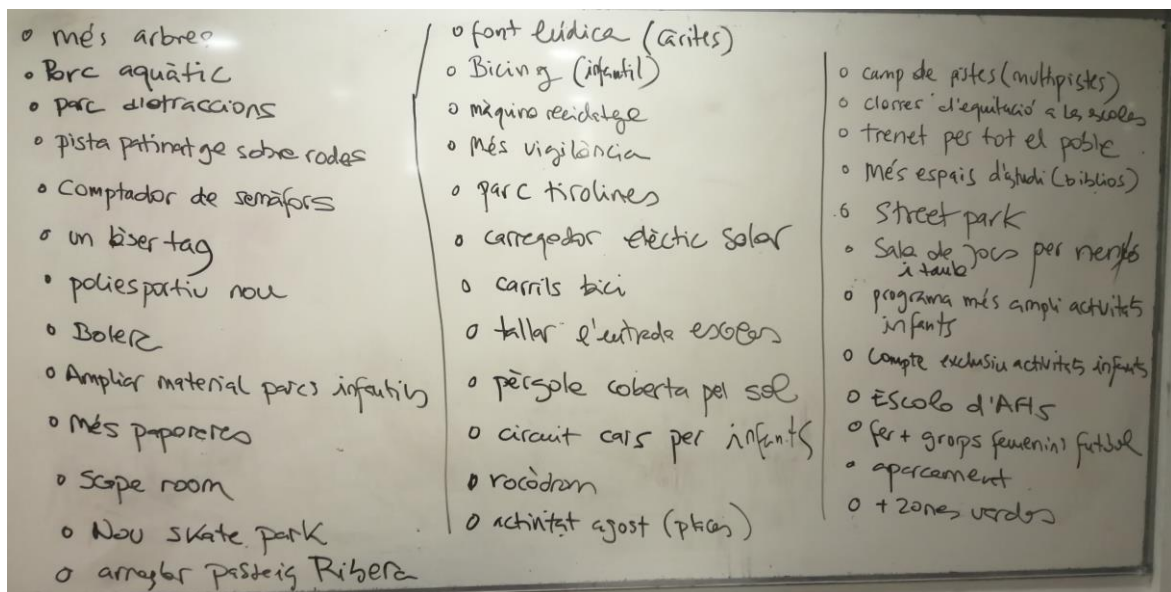 o més arbres
o Parc aquàtic
o parc d'atraccions
o pista patinatge sobre rodes
o Comptador de semàfors
o un làser tag
o poliesportiu nou
o Bolera
o Ampliar material parcs infantils
o Més papereres
o Scape room
o Nou skate park
o arreglar passeig Ribera
o font lúdica (Càrites)
o Bicing (infantil)
o màquina reciclatge
o Més vigilància
o parc tirolines
o carregador elèctic solar
o carrils bici
o tallar l'entrada escoles
o pèrgola coberta pel sol
o circuit cars per infants
o rocòdrom
o activitat agost (places)
o camp de pistes (multipistes)
o classes d'equitació a les escoles
o trenet per tot el poble
o Més espais d'estudi (biblios)
o Street park
o Sala de jocs per nens
i taula
o programa més ampli activitats
infants
o Compte exclusiu activitats infants
o Escola d'Arts
o fer + grups femenins futbol
o aparcament
o + zones verdes